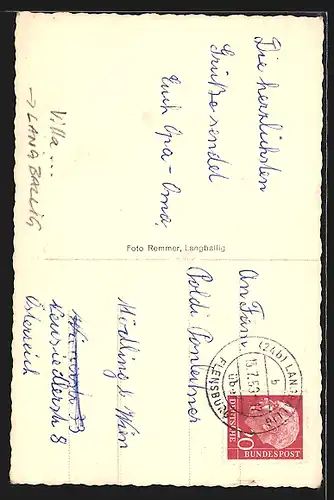 Die herzlichsten
Grüße sendet
Euch Opa - Oma
Villa ...
→ LANGBALLIG
Foto Remmer, Langballig
An Fam.
Poldi
Mödling b. Wien
Neusiedlerstr 8
Österreich
(24b) LANG
b
15.7.59
über
FLENSBURG
20
DEUTSCHE
BUNDESPOST